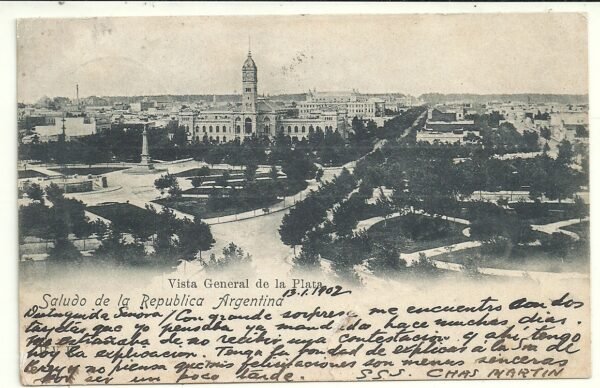 Vista General de la Plata
Saludo de la Republica Argentina 13.1.1902
Distinguida Señora/Con gran de sorpresa me encuentro con dos
tarjetas que yo pensaba ya mandado hace muchas dias.
Me estrañaba de no recibir una contestacion. y ahi tengo
hoy la explicacion. Tenga la bondad de explicar a la Sn del
y no piensa que mis felicitaciones son menos sinceras
por ser un poco tarde. S.S.S. CHAS MARTIN